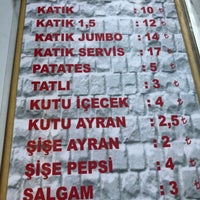 KATIK : 10 ₺
KATIK 1,5 : 12 ₺
KATIK JUMBO : 14 ₺
KATIK SERVİS : 17 ₺
PATATES : 5 ₺
TATLI : 3 ₺
KUTU İÇECEK : 4 ₺
KUTU AYRAN : 2,5 ₺
ŞİŞE AYRAN : 2 ₺
ŞİŞE PEPSİ : 4 ₺
ŞALGAM : 3 ₺